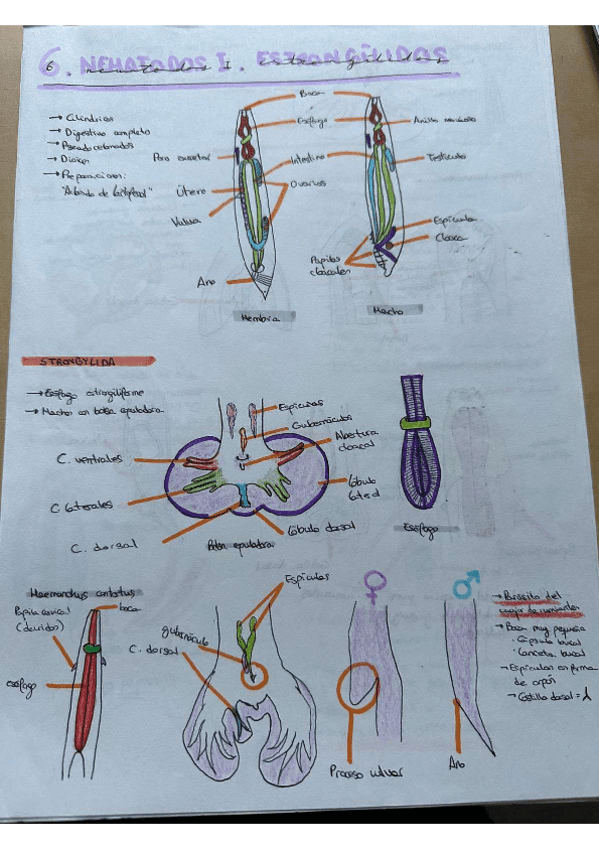 6. NEMATODOS I. ESTRONGÍLIDOS
6. nematodos I. estrongílidos
→ Cilíndricos
→ Digestivo completo
→ Pseudocelomados
→ Dioicos
→ Preparaciones:
Boca
Esófago
Anillo nervioso
Poro excretor
Intestino
Testículo
Útero
Ovarios
Vulva
Espícula
Cloaca
Papilas
cloacales
Ano
Hembra
Macho
STRONGYLIDA
→ Esófago estrongiliforme
→ Machos con bolsa copuladora
Espículas
Gubernáculos
Abertura
cloacal
C. ventrales
C. laterales
Lóbulo
lateral
C. dorsal
Bolsa copuladora
Lóbulo dorsal
Esófago
Haemonchus contortus
Papila cervical
(deiridio)
boca
esófago
Espículas
gubernáculo
C. dorsal
♀
♂
Proceso vulvar
Ano
→ Parásito del
cuajo de rumiantes
→ Boca muy pequeña
· Cápsula bucal
· Lanceta bucal
→ Espículas en forma
de arpón
→ Costilla dorsal = λ